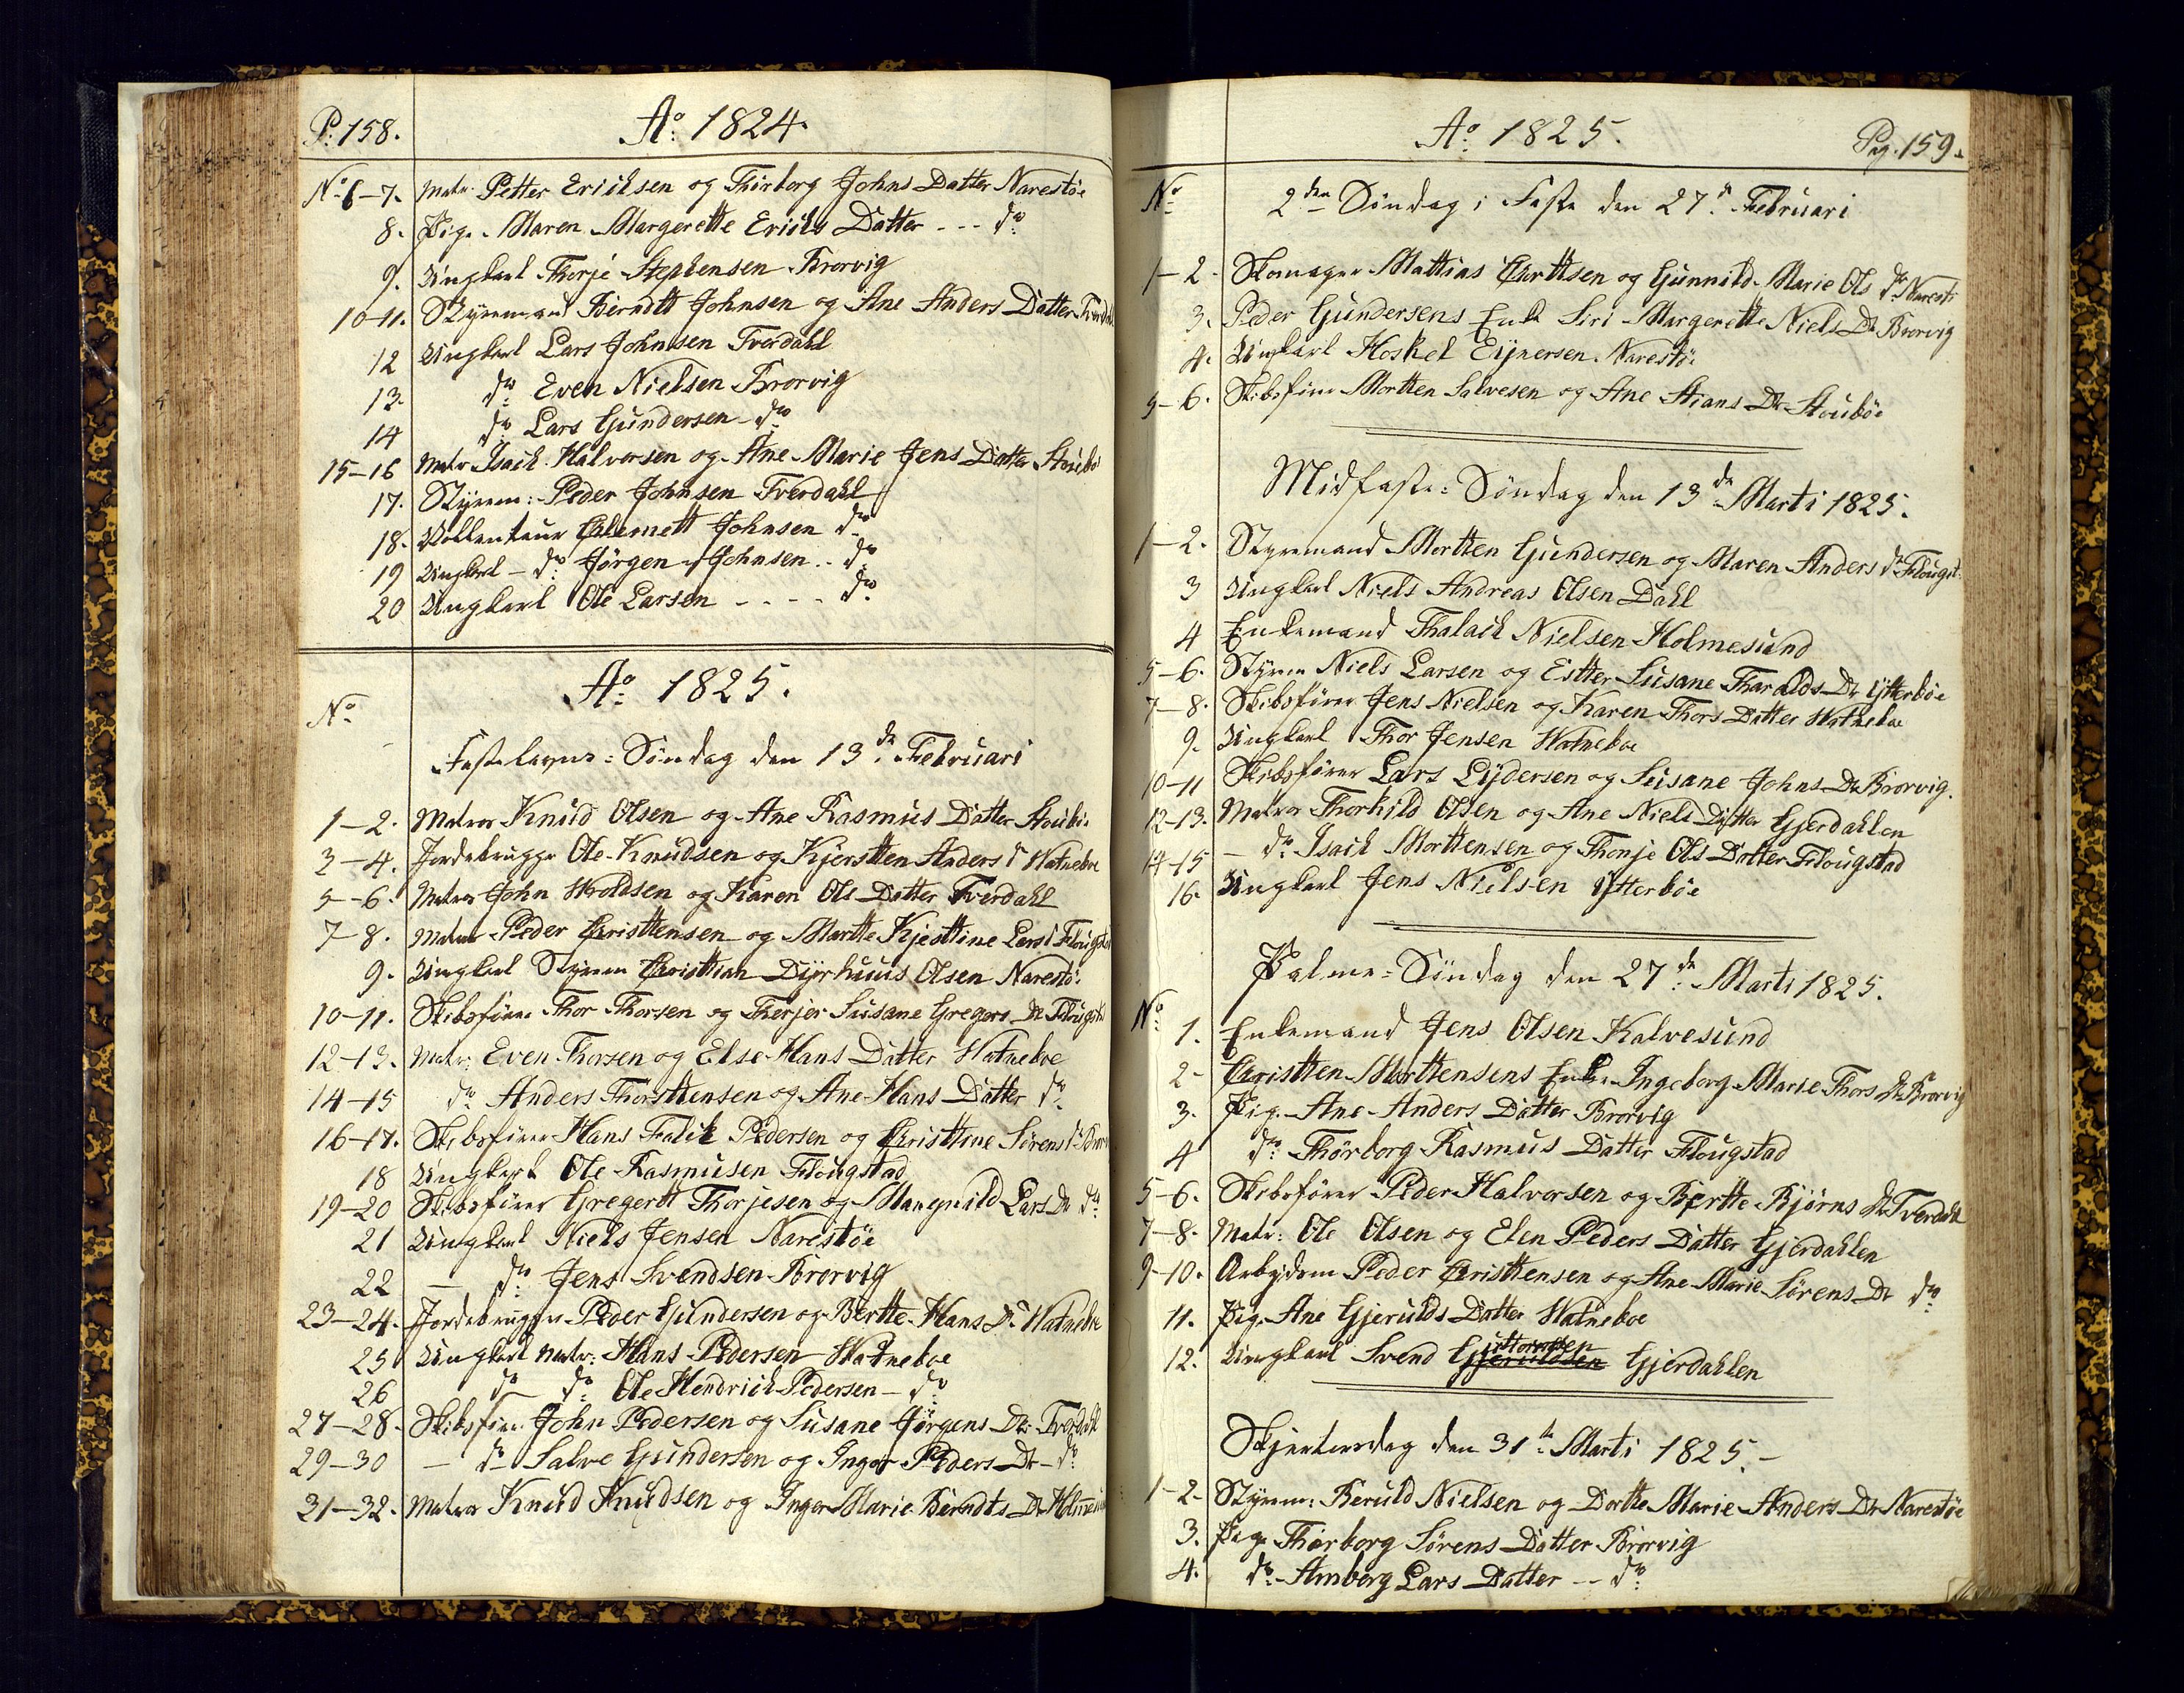 P: 158.
Ao: 1824.
No 6-7. Matr. Petter Ericksen og Thorborg Johns Datter Narestøe
8. Pige. Maren Margerette Ericks Datter --- do
9. Ungkarl Thorje Stephensen Brorvig
10-11. Styremand Berndtt Johnsen og Ane Anders Datter
12 Ungkarl Lars Johnsen Tverdahl
13. do Even Nielsen Brorvig
14 do Lars Gundersen - do
15-16 Matr Isack Halvorsen og Ane Marie Jens Datter
17. Styrem: Peder Johnsen Tverdahl
18. Chlemett Johnsen do
19 Ungkarl - do Jørgen Johnsen .. do
20 Ungkarl Ole Larsen - - - - do
Ao: 1825.
No
Fastelavns = Søndag den 13de Februari
1-2. Matros Knud Olsen og Ane Rasmus Datter Stoubø
3-4. Jordebrugger Ole Knudsen og Kjerstten Anders D Watneboe
5-6. Matros John Woldsen og Karen Ols Datter Tverdahl
7-8. Matros Peder Christtensen og Martte Kjesttine Lars D
9. Ungkarl Styrem Christtian Dyrhuus Olsen Narestø:
10-11. Skibsfører Thor Thorsen og Therjer Susane Gregers Dr
12-13. Matr: Even Thorsen og Else Hans Datter Watneboe
14-15 do Anders Thorsttensen og Ane Hans Datter do
16-17. Skibsfører Hans Falck Pedersen og Christtine Sørens Dr
18 Ungkarl Ole Rasmusen Flougstad
19-20 Skibsfører Gregertt Thorjesen og Mangnild Lars Dr do
21 Ungkarl Niels Jensen Narestøe
22 - do Jens Svendsen Brorvig
23-24. Jordebrugger Peder Gundersen og Bertte Hans Dr Watneboe
25 Ungkarl Matr: Hans Pedersen Watneboe
26 do do Ole Hendrick Pedersen - do
27-28. Skibsfører John Pedersen og Susane Jørgens Dr: Tverdahl
29-30 - do Salve Gundersen og Inger Peders Dr - do
31-32. Matros Knud Knudsen og Inger Marie Berndts Dr
Ao: 1825.
Pag. 159.
No
2den Søndag i Faste den 27de Februari
1-2. Skomager Mattias Churttsen og Gunnild Marie Ols Dr
3. Peder Gundersens Enke Siri Margerette Niels Dr Brorvig
4. Ungkarl Hoskel Eynersen Narestøe
5-6. Skibsfører Mortten Salvesen og Ane Stians Dr Stoubøe
Midfaste = Søndag den 13de Marti 1825.
1-2. Styremand Mortten Gundersen og Maren Anders Dr Flougst.
3 Ungkarl Niels Andreas Olsen Dahl
4 Enkemand Thalack Nielsen Holmesund
5-6. Styrem Niels Larsen og Estter Susane Tharalds Dr Ytterbøe
7-8. Skibsfører Jens Nielsen og Karen Thors Datter Watneboe
9. Ungkarl Thor Jensen Watneboe
10-11 Skibsfører Lars Lydersen og Susane Johns Dr Brorvig.
12-13. Matros Thorkild Olsen og Ane Niels Datter Gjerdahlen
14-15 - do Isack Morttensen og Thonje Ols Datter Flougstad
16. Ungkarl Jens Nielsen Ytterbøe
Palme = Søndag den 27de Marti 1825.
No
1. Enkemand Jens Olsen Kalvesund
2- Christten Morttensens Enke Ingeborg Marie Thors Dr Brorvig
3. Pige Ane Anders Datter Brorvig
4 do: Thorborg Rasmus Datter Flougstad
5-6. Skibsfører Peder Halvorsen og Bertte Bjørns Dr Tverdahl
7-8. Matr: Ole Olsen og Elen Peders Datter Gjerdahlen
9-10. Arbejdsm Peder Christtensen og Ane Marie Sørens Dr do
11. Pige Ane Gjerulds Datter Watneboe
12. Ungkarl Svend Gjeruldsen Guttormsen Gjerdahlen
Skjertorsdag den 31te Marti 1825.-
1-2. Styrem: Beruld Nielsen og Dortte Marie Anders Dr Narestøe
3. Pige Thorborg Sørens Datter Brorvig
4. do Amberg Lars Datter -- do